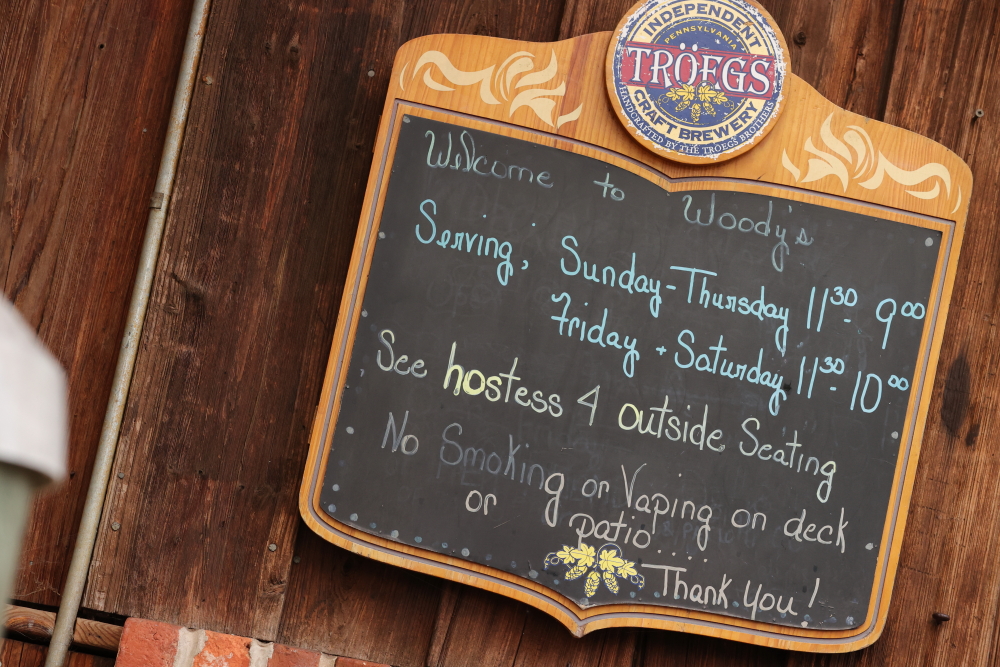 INDEPENDENT
PENNSYLVANIA
TRÖEGS
CRAFT BREWERY
HANDCRAFTED BY THE TRÖEGS BROTHERS
Welcome to Woody's
Serving; Sunday-Thursday 11³⁰- 9⁰⁰
Friday + Saturday 11³⁰- 10⁰⁰
See hostess 4 outside Seating
No Smoking or Vaping on deck
or patio....
Thank you!